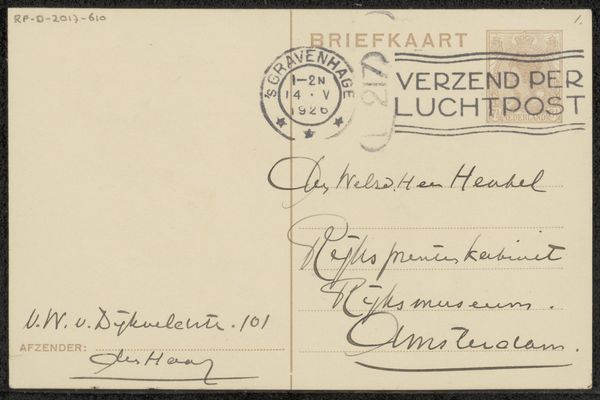 RP-D-2017-610
1.
BRIEFKAART
'SGRAVENHAGE
1-2N
14 · V
1926
217
VERZEND PER
LUCHTPOST
NEDERLAND
Rijksprentenkabinet
Rijksmuseum.
Amsterdam.
v. W. v. Dijkveldstr. 101
AFZENDER:
den Haag